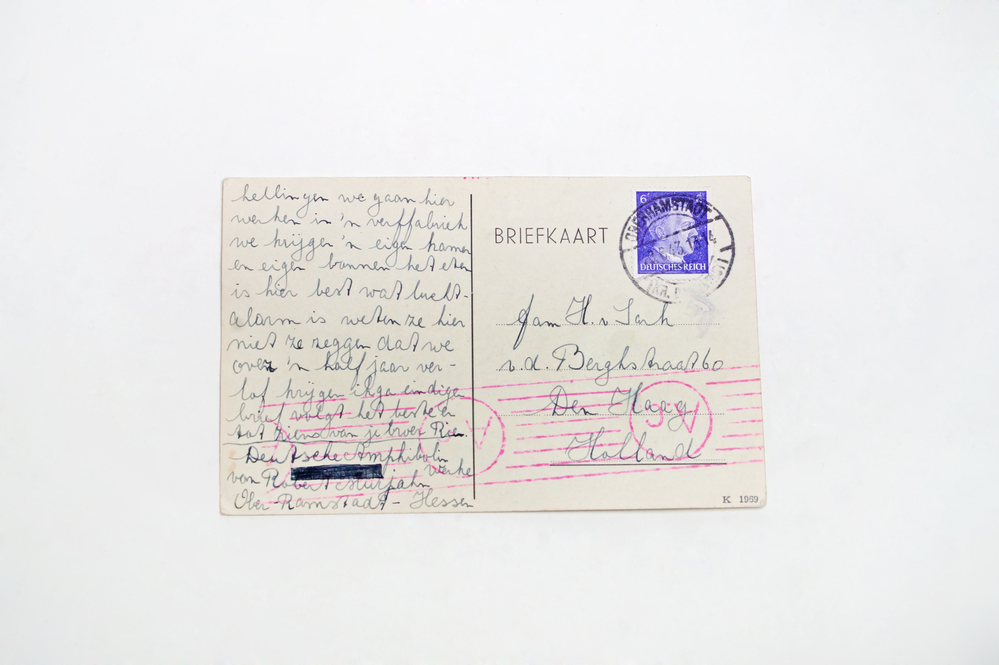 hellingen we gaan hier
werken in 'n verffabriek
we krijgen 'n eigen kamer
en eigen bannen het eten
is hier best wat lucht-
alarm is weten ze hier
niet ze zeggen dat we
over 'n half jaar ver-
lof krijgen ik ga eindigen
brief volgt het beste en
tot ziens van je broer Rien.
Deutsche Amphibolin
werke
von Robert Murjahn
Ober-Ramstadt - Hessen
BRIEFKAART
6
DEUTSCHES REICH
OBER-RAMSTADT
43.13-14
Fam H. v
v.d. Berghstraat 60
Den Haag
Holland
K 1969